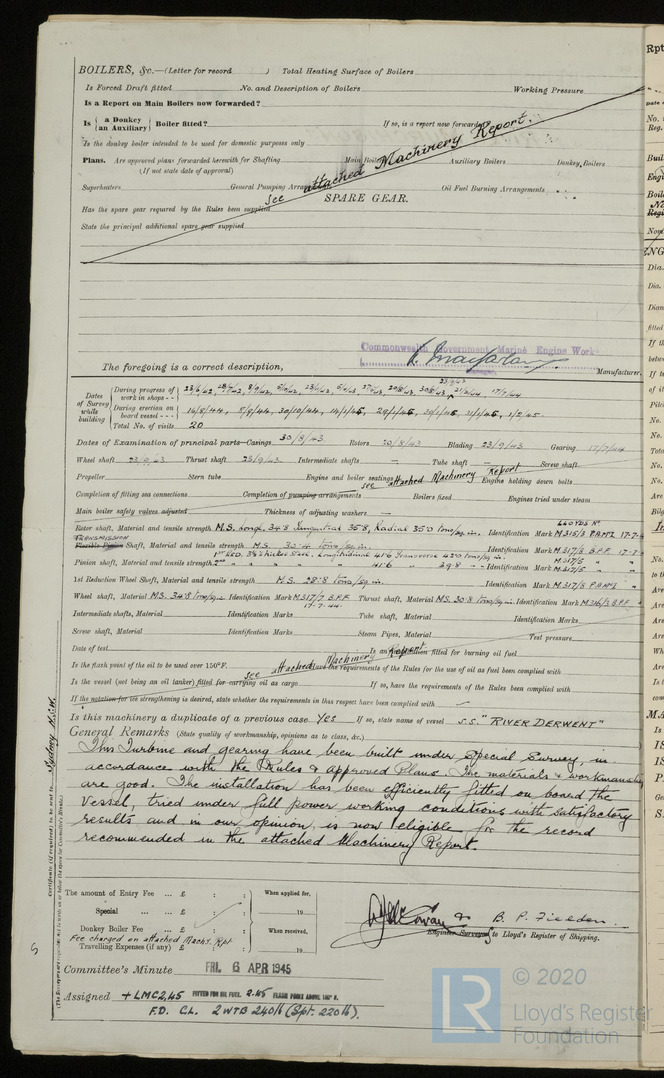 BOILERS, &c.—(Letter for record ) Total Heating Surface of Boilers
Is Forced Draft fitted No. and Description of Boilers Working Pressure
Is a Report on Main Boilers now forwarded?
Is { a Donkey / an Auxiliary } Boiler fitted? If so, is a report now forwarded?
Is the donkey boiler intended to be used for domestic purposes only
Plans. Are approved plans forwarded herewith for Shafting Main Boilers Auxiliary Boilers Donkey Boilers
(If not state date of approval)
Superheaters General Pumping Arrangements Oil Fuel Burning Arrangements
see attached Machinery Report.
SPARE GEAR.
Has the spare gear required by the Rules been supplied
State the principal additional spare gear supplied
Commonwealth Government Marine Engine Work
The foregoing is a correct description,
Manager. Manufacturer.
Dates of Survey while building
During progress of work in shops - -
During erection on board vessel - - -
16/8/44, 5/9/44, 30/10/44, 14/1/45, 29/1/45, 31/1/45, 1/2/45.
Total No. of visits 20
Dates of Examination of principal parts—Casings 30/8/43 Rotors 20/8/43 Blading 23/9/43 Gearing 17/7/44
Wheel shaft 23/9/43 Thrust shaft 23/9/43 Intermediate shafts — Tube shaft — Screw shaft
Propeller Stern tube Engine and boiler seatings Engine holding down bolts
see attached Machinery Report
Completion of fitting sea connections Completion of pumping arrangements Boilers fixed Engines tried under steam
Main boiler safety valves adjusted Thickness of adjusting washers
LLOYDS No
Rotor shaft, Material and tensile strength M.S. Longl. 34.8 Tangential 35.8, Radial 35.0 tons/sq.in. Identification Mark
TRANSMISSION
Shaft, Material and tensile strength M.S. 30.4 tons/sq.in. Identification Mark M.317/8 B.P.F. 17-7-
Pinion shaft, Material and tensile strength 1st RED. 3½% Nickel Steel. Longitudinal 41.6 Transverse 42.0 tons/sq.in. Identification Mark M.317/5
2nd " " " " " 41.6 " 39.8 " M.317/5
1st Reduction Wheel Shaft, Material and tensile strength M.S. 28.8 tons/sq.in. Identification Mark
Wheel shaft, Material M.S. 34.8 tons/sq.in. Identification Mark M317/7 B.P.F. 17.7.44. Thrust shaft, Material M.S. 30.8 tons/sq.in. Identification Mark M316/3 B.P.F.
Intermediate shafts, Material Identification Marks Tube shaft, Material Identification Marks
Screw shaft, Material Identification Marks Steam Pipes, Material Test pressure
Date of test Is an installation fitted for burning oil fuel
Is the flash point of the oil to be used over 150°F. and the requirements of the Rules for the use of oil as fuel been complied with
see attached Machinery Report
Is the vessel (not being an oil tanker) fitted for carrying oil as cargo If so, have the requirements of the Rules been complied with
If the notation for ice strengthening is desired, state whether the requirements in this respect have been complied with —
Is this machinery a duplicate of a previous case Yes If so, state name of vessel S.S. "RIVER DERWENT"
General Remarks (State quality of workmanship, opinions as to class, &c.)
This Turbine and gearing have been built under Special Survey, in
accordance with the Rules & approved Plans. The materials & workmanship
are good. The installation has been efficiently fitted on board the
vessel, tried under full power working conditions with satisfactory
results and in our opinion, is now eligible for the record
recommended in the attached Machinery Report.
Sydney N.S.W.
Certificate (if required) to be sent to
The amount of Entry Fee ... £ : : When applied for,
Special ... £ : : 19
Donkey Boiler Fee ... £ : : When received,
Fee charged on attached Machy. Rpt
Travelling Expenses (if any) £ : : 19
& B. P. Fielden.
Engineer Surveyors to Lloyd's Register of Shipping.
Committee's Minute FRI. 6 APR 1945
Assigned + LMC 2,45 FITTED FOR OIL FUEL 2.45 FLASH POINT ABOVE 150° F.
F.D. C.L. 2 WTB 240 lb (Spt. 220 lb).
© 2020
Lloyd's Register
Foundation
LR